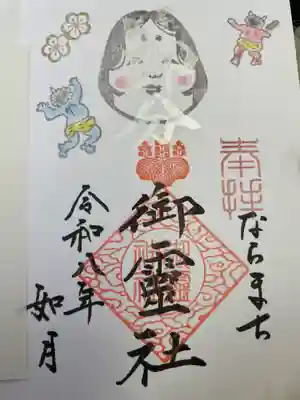 奉拝
ならまち
節分
御靈社
令和八年
如月